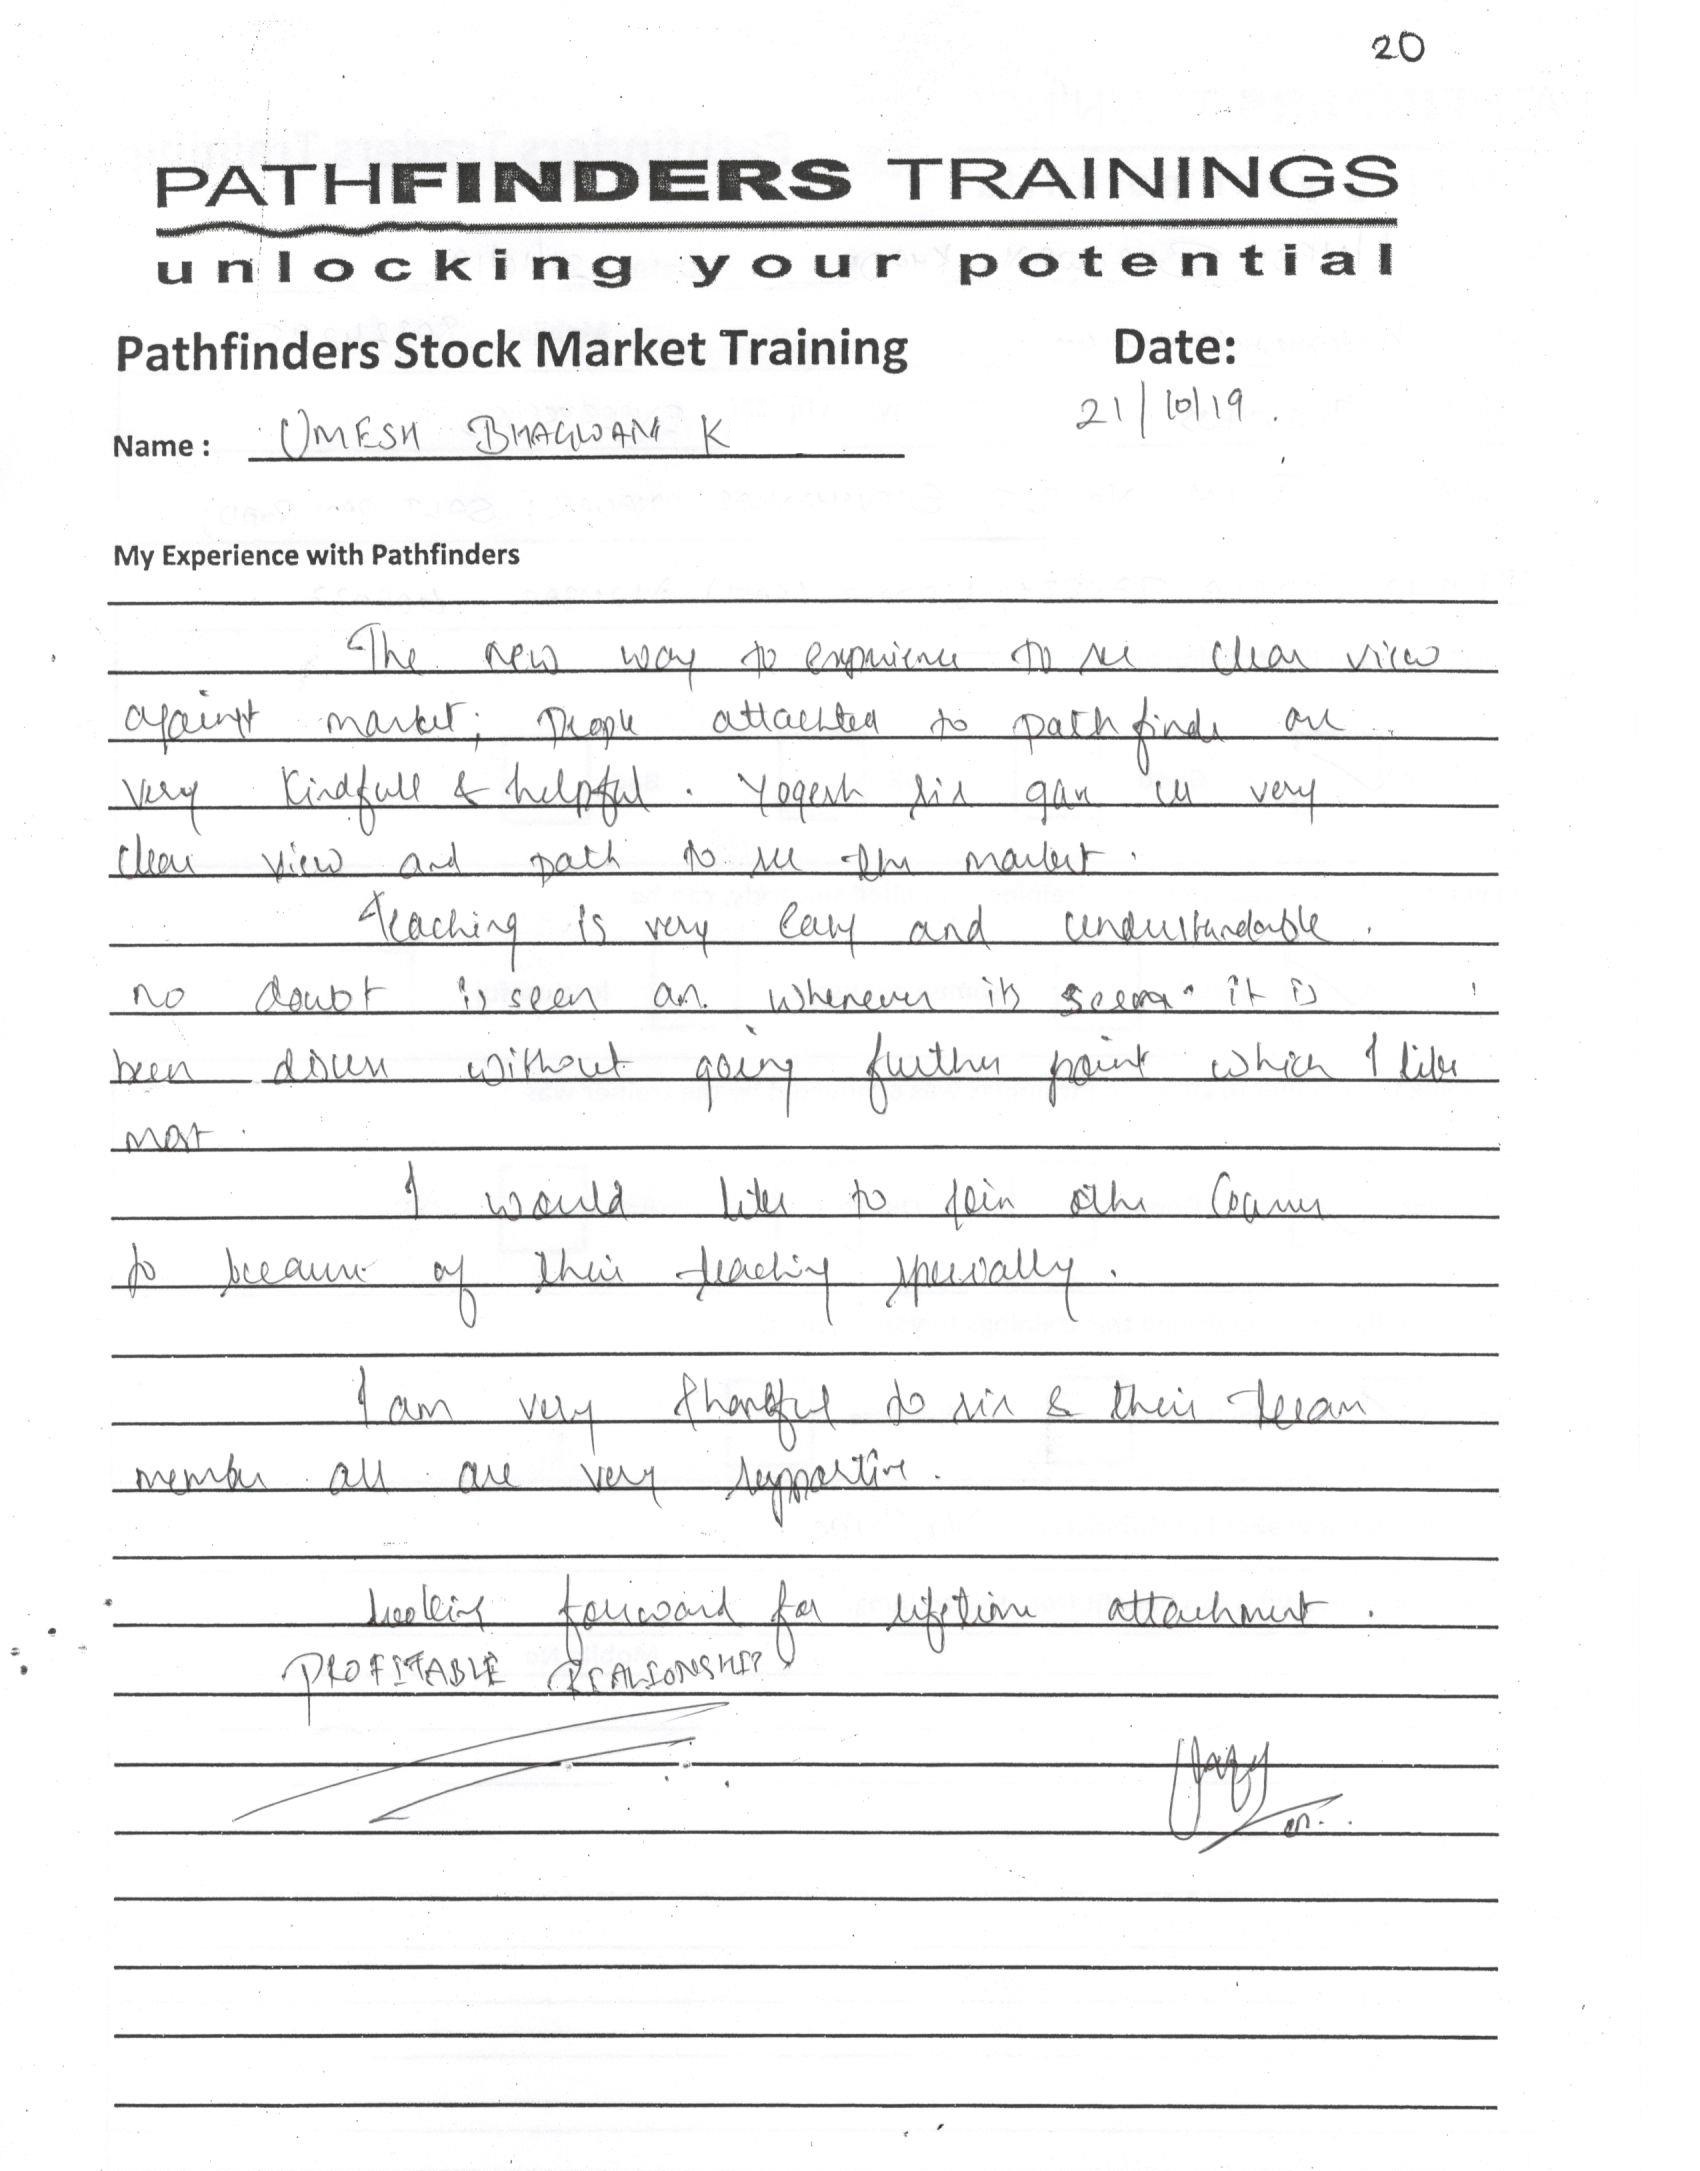 20
PATHFINDERS TRAININGS
unlocking your potential
Pathfinders Stock Market Training Date:
21/10/19.
Name : UMESH BHAGWANI K
My Experience with Pathfinders
The new way to experience to see clear view
against market; People attachted to path finder are
very Kindfull & helpful. Yogesh sir gave us very
clear view and path to see the market.
Teaching is very easy and understandable.
no doubt is seen an. whenever its it is
been without going further point which I like
most.
I would like to join other Courses
to because of their teaching specially.
I am very thankful to sir & their team
member all are very supportive.
Looking forward for lifetime attachment.
PROFITABLE REALIONSHIP